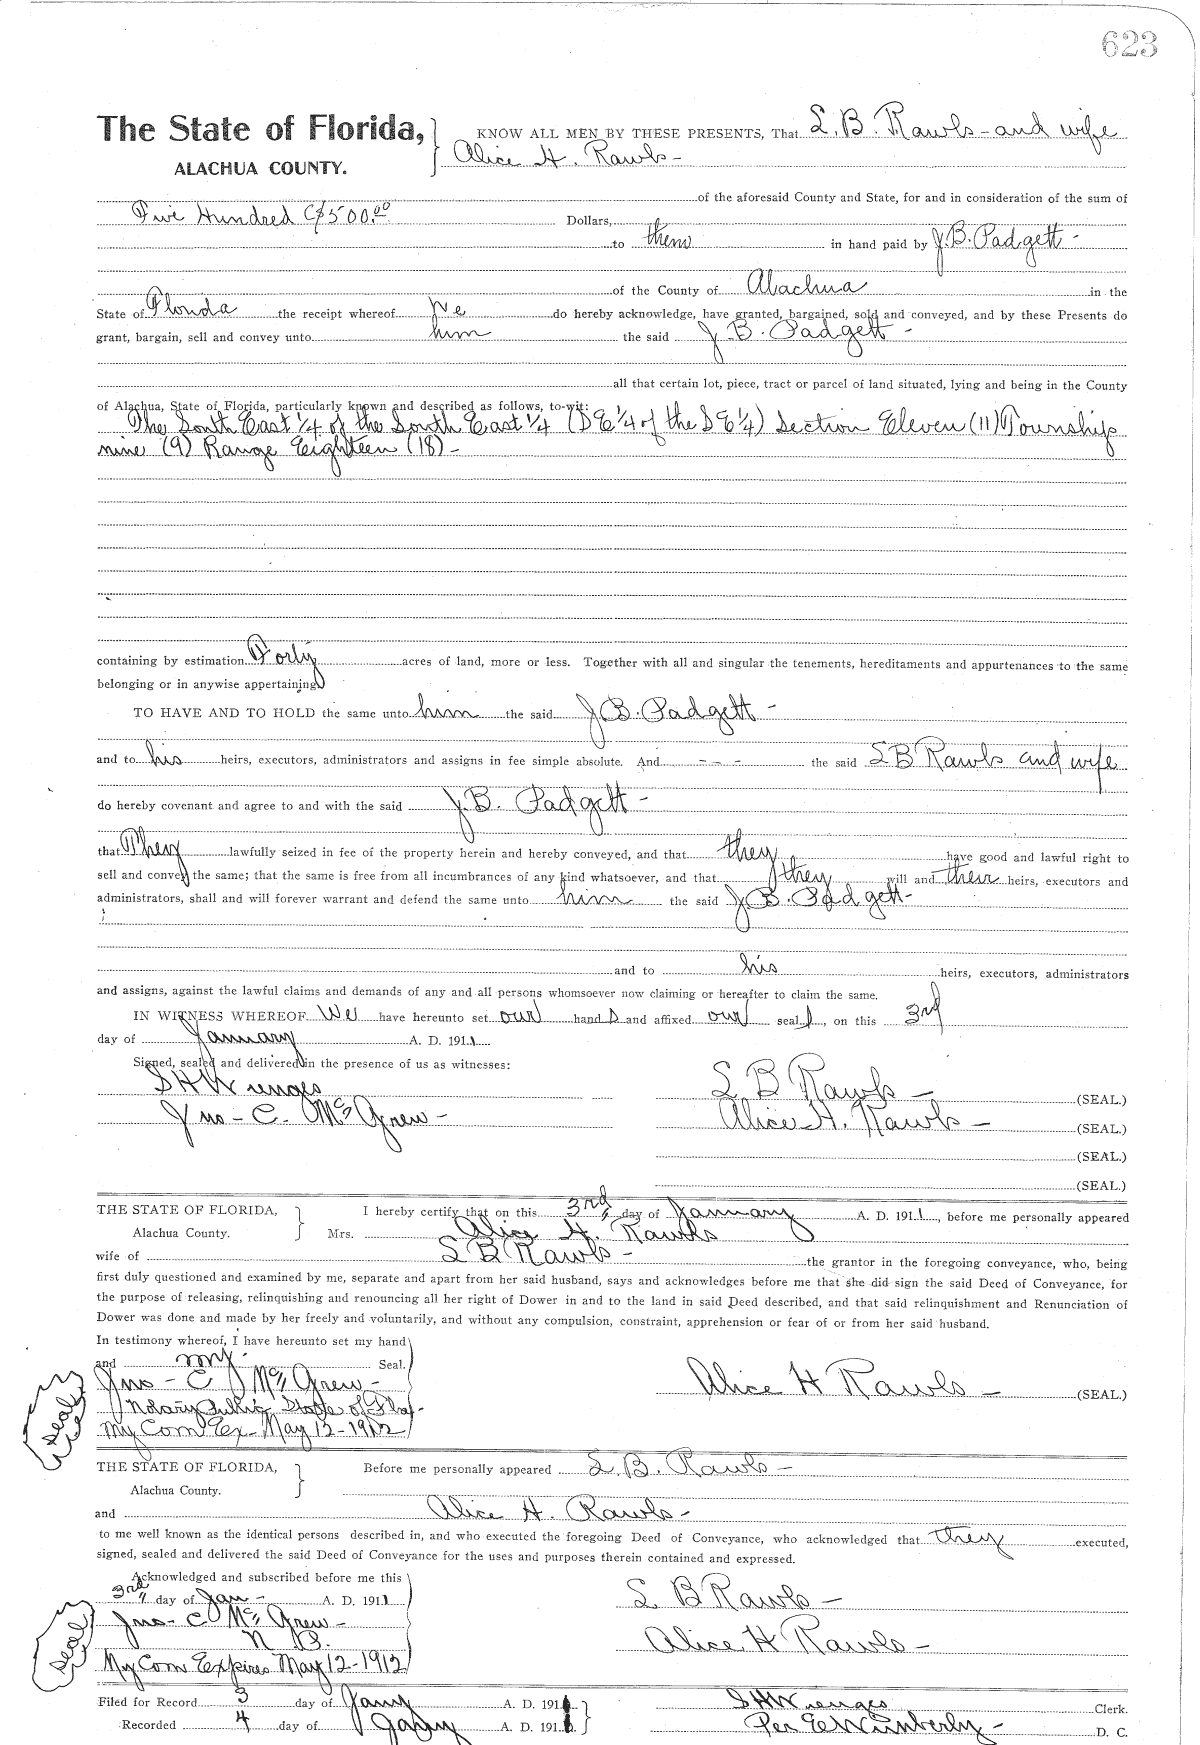 623
The State of Florida, KNOW ALL MEN BY THESE PRESENTS, That S. B. Rawls - and wife
ALACHUA COUNTY. Alice H. Rawls -
of the aforesaid County and State, for and in consideration of the sum of
Five Hundred ($500.00 Dollars,
to them in hand paid by J. B. Padgett -
of the County of Alachua in the
State of Florida the receipt whereof We do hereby acknowledge, have granted, bargained, sold and conveyed, and by these Presents do
grant, bargain, sell and convey unto him the said J. B. Padgett -
all that certain lot, piece, tract or parcel of land situated, lying and being in the County
of Alachua, State of Florida, particularly known and described as follows, to-wit:
The South East 1/4 of the South East 1/4 (S E 1/4 of the S E 1/4) Section Eleven (11) Township
nine (9) Range Eighteen (18) -
containing by estimation Forty acres of land, more or less. Together with all and singular the tenements, hereditaments and appurtenances to the same
belonging or in anywise appertaining
TO HAVE AND TO HOLD the same unto him the said J. B. Padgett -
and to his heirs, executors, administrators and assigns in fee simple absolute. And - - - the said S B Rawls and wife
do hereby covenant and agree to and with the said J. B. Padgett -
that They lawfully seized in fee of the property herein and hereby conveyed, and that they have good and lawful right to
sell and convey the same; that the same is free from all incumbrances of any kind whatsoever, and that they will and their heirs, executors and
administrators, shall and will forever warrant and defend the same unto him the said J. B. Padgett -
and to his heirs, executors, administrators
and assigns, against the lawful claims and demands of any and all persons whomsoever now claiming or hereafter to claim the same.
IN WITNESS WHEREOF We have hereunto set our hand s and affixed our seal s, on this 3rd
day of January A. D. 1911
Signed, sealed and delivered in the presence of us as witnesses:
S H Wienges S B Rawls - (SEAL.)
Jno - C. McGrew - Alice H. Rawls - (SEAL.)
(SEAL.)
(SEAL.)
THE STATE OF FLORIDA, I hereby certify that on this 3rd day of January A. D. 1911, before me personally appeared
Alachua County. Mrs. Alice H. Rawls
wife of S B Rawls - the grantor in the foregoing conveyance, who, being
first duly questioned and examined by me, separate and apart from her said husband, says and acknowledges before me that she did sign the said Deed of Conveyance, for
the purpose of releasing, relinquishing and renouncing all her right of Dower in and to the land in said Deed described, and that said relinquishment and Renunciation of
Dower was done and made by her freely and voluntarily, and without any compulsion, constraint, apprehension or fear of or from her said husband.
In testimony whereof, I have hereunto set my hand
and my Seal.
Jno - C McGrew - Alice H Rawls - (SEAL.)
Seal Notary Public State of Fla -
My Com Ex - May 12 - 1912
THE STATE OF FLORIDA, Before me personally appeared S. B. Rawls -
Alachua County.
and Alice H. Rawls -
to me well known as the identical persons described in, and who executed the foregoing Deed of Conveyance, who acknowledged that they executed,
signed, sealed and delivered the said Deed of Conveyance for the uses and purposes therein contained and expressed.
Acknowledged and subscribed before me this
3rd day of Jan - A. D. 1911 S. B Rawls -
Jno - C McGrew -
Seal N P. Alice H Rawls -
My Com Expires May 12 - 1912
Filed for Record 3 day of Jany A. D. 1911 S H Wienges Clerk.
Recorded 4 day of Jany A. D. 1911. Per E Wimberly - D. C.